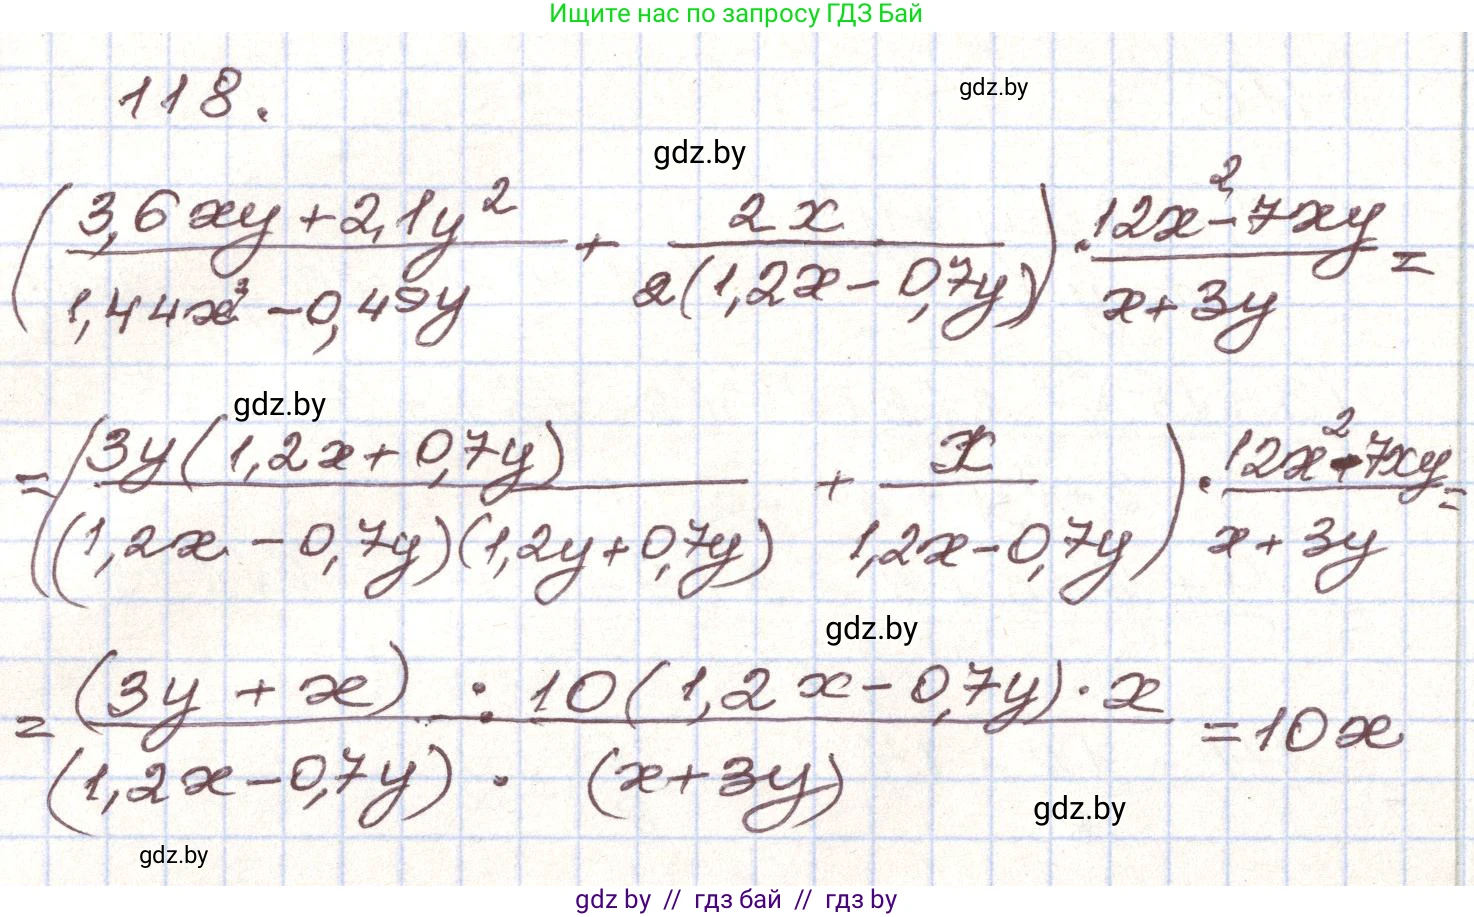 Ищите нас по запросу ГДЗ Бай
118.
gdz.by
gdz.by
(3,6xy+2,1y²/1,44x² - 0,49y + 2x/2(1,2x - 0,7y)) · 12x²-7xy/x+3y =
gdz.by
= (3y(1,2x+0,7y)/(1,2x - 0,7y)(1,2y+0,7y) + x/1,2x-0,7y) · 12x²-7xy/x+3y =
gdz.by
= (3y + x) : 10(1,2x - 0,7y) · x/(1,2x-0,7y) · (x+3y) = 10x
gdz.by
gdz.by
gdz by // гдз бай // гдз by